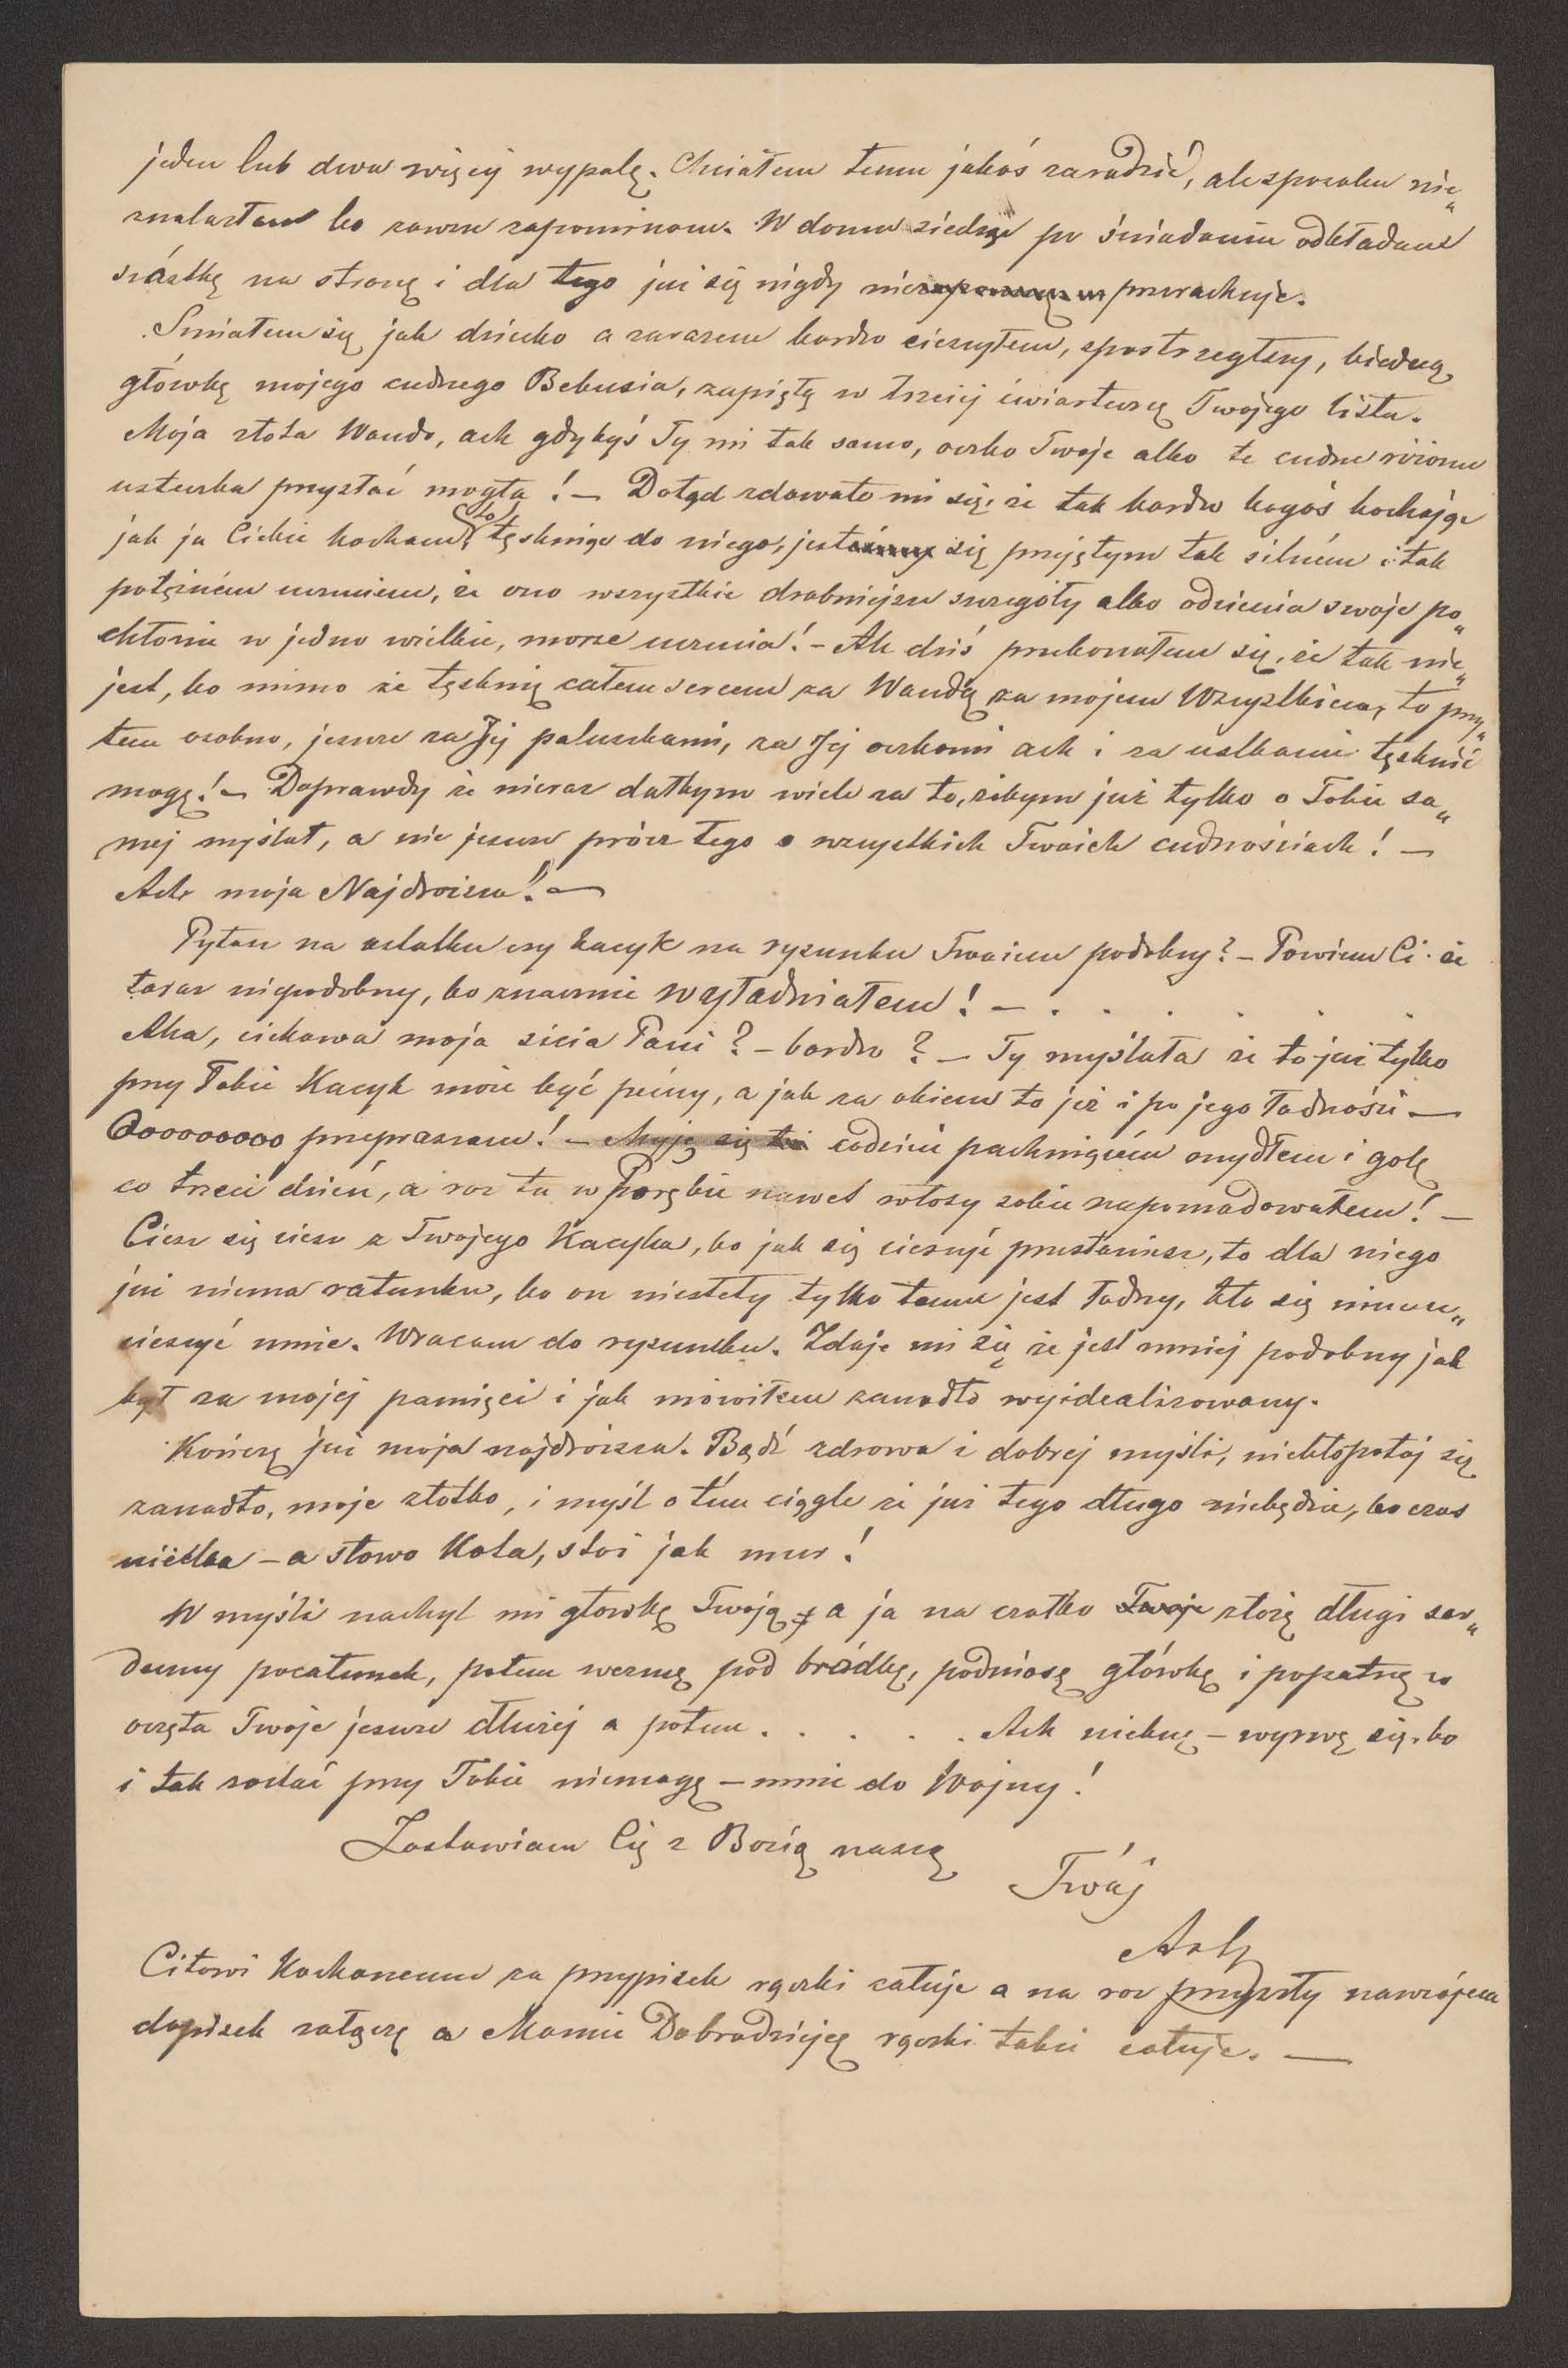 jeden lub dwa więcej wypalę. Chciałem temu jakoś zaradzić, ale sposobu nie„
znalazłem bo zawsze zapominam. W domu siedząc po śniadaniu odkładam
szóstkę na stronę i dla tego już się nigdy nie przerachuję.
Śmiałem się jak dziecko a zarazem bardzo cieszyłem, spostrzegłszy, biedną
główkę mojego cudnego Bebusia, zapiętą w trzeciej ćwiartuszę Twojego listu.
Moja złota Wando, ach gdybyś Ty mi tak samo, oczko Twoje albo te cudne różowe
usteczka przysłać mogła! — Dotąd zdawało mi się, że tak bardzo kogoś kochając
jak ja Ciebie kocham, to tęskniąc do niego, jest się przejętym tak silném i tak
potężném uczuciem, że ono wszystkie drobniejsze szczegóły albo odcienia swoje po„
chłonie w jedno wielkie, morze uczucia! – Ale dziś przekonałem się, że tak nie„
jest, bo mimo że tęsknię całem sercem za Wandą za mojem Wszystkiem, to przy„
tem osobno, jeszcze za Jej paluszkami, za Jej oczkami ach i za ustkami tęsknić
mogę! — Doprawdy że nieraz dałbym wiele za to, żebym już tylko o Tobie sa„
mej myślał, a nie jeszcze prócz tego o wszystkich Twoich cudnościach! —
Ach moja Najdroższa! —
Pytasz na ostatku czy Kacyk na rysunku Twoim podobny? — Powiem Ci że
teraz niepodobny, bo znacznie wyładniałem! — . . . . . .
Aha, ciekawa moja sicia Pani? – bardzo? — Ty myślała że to już tylko
przy Tobie Kacyk może być piény, a jak za okiem to już i po jego ładności —
Ooooooooo przepraszam! — Myję się codzień pachnącém mydłem i golę
co trzeci dzień, a raz tu w Porębie nawet włosy sobie napomadowałem! —
Ciesz się ciesz z Twojego Kacyka, bo jak się cieszyć przestaniesz, to dla niego
już niema ratunku, bo on niestety tylko temu jest ładny, kto się nim u„
cieszyć umie. Wracam do rysunku. Zdaje mi się że jest mniej podobny jak
był za mojej pamięci i jak mówiłem zanadto wyidealizowany.
Kończę już moja najdroższa. Bądź zdrowa i dobrej myśli, niekłopotaj się
zanadto, moje złotko, i myśl o tém ciągle że już tego długo niebędzie, bo czas
ucieka – a słowo Kota, stoi jak mur!
W myśli nachyl mi główkę Twoją, a ja na czółko Twoje złożę długi ser„
deczny pocałunek, potem wezmę pod bródkę, podniosę główkę i popatrzę w
oczęta Twoje jeszcze dłużej a potem . . . . . Ach niechcę – wyrwę się, bo
i tak zostać przy Tobie niemogę — mnie do Wojny!
Zostawiam Cię z Bozią naszą
Twój
Art
Citowi Kochanemu za przypisek rączki całuję a na raz przyszły nawzajem
dopisek załączę a Mamie Dobrodziejce rączki także całuję. —